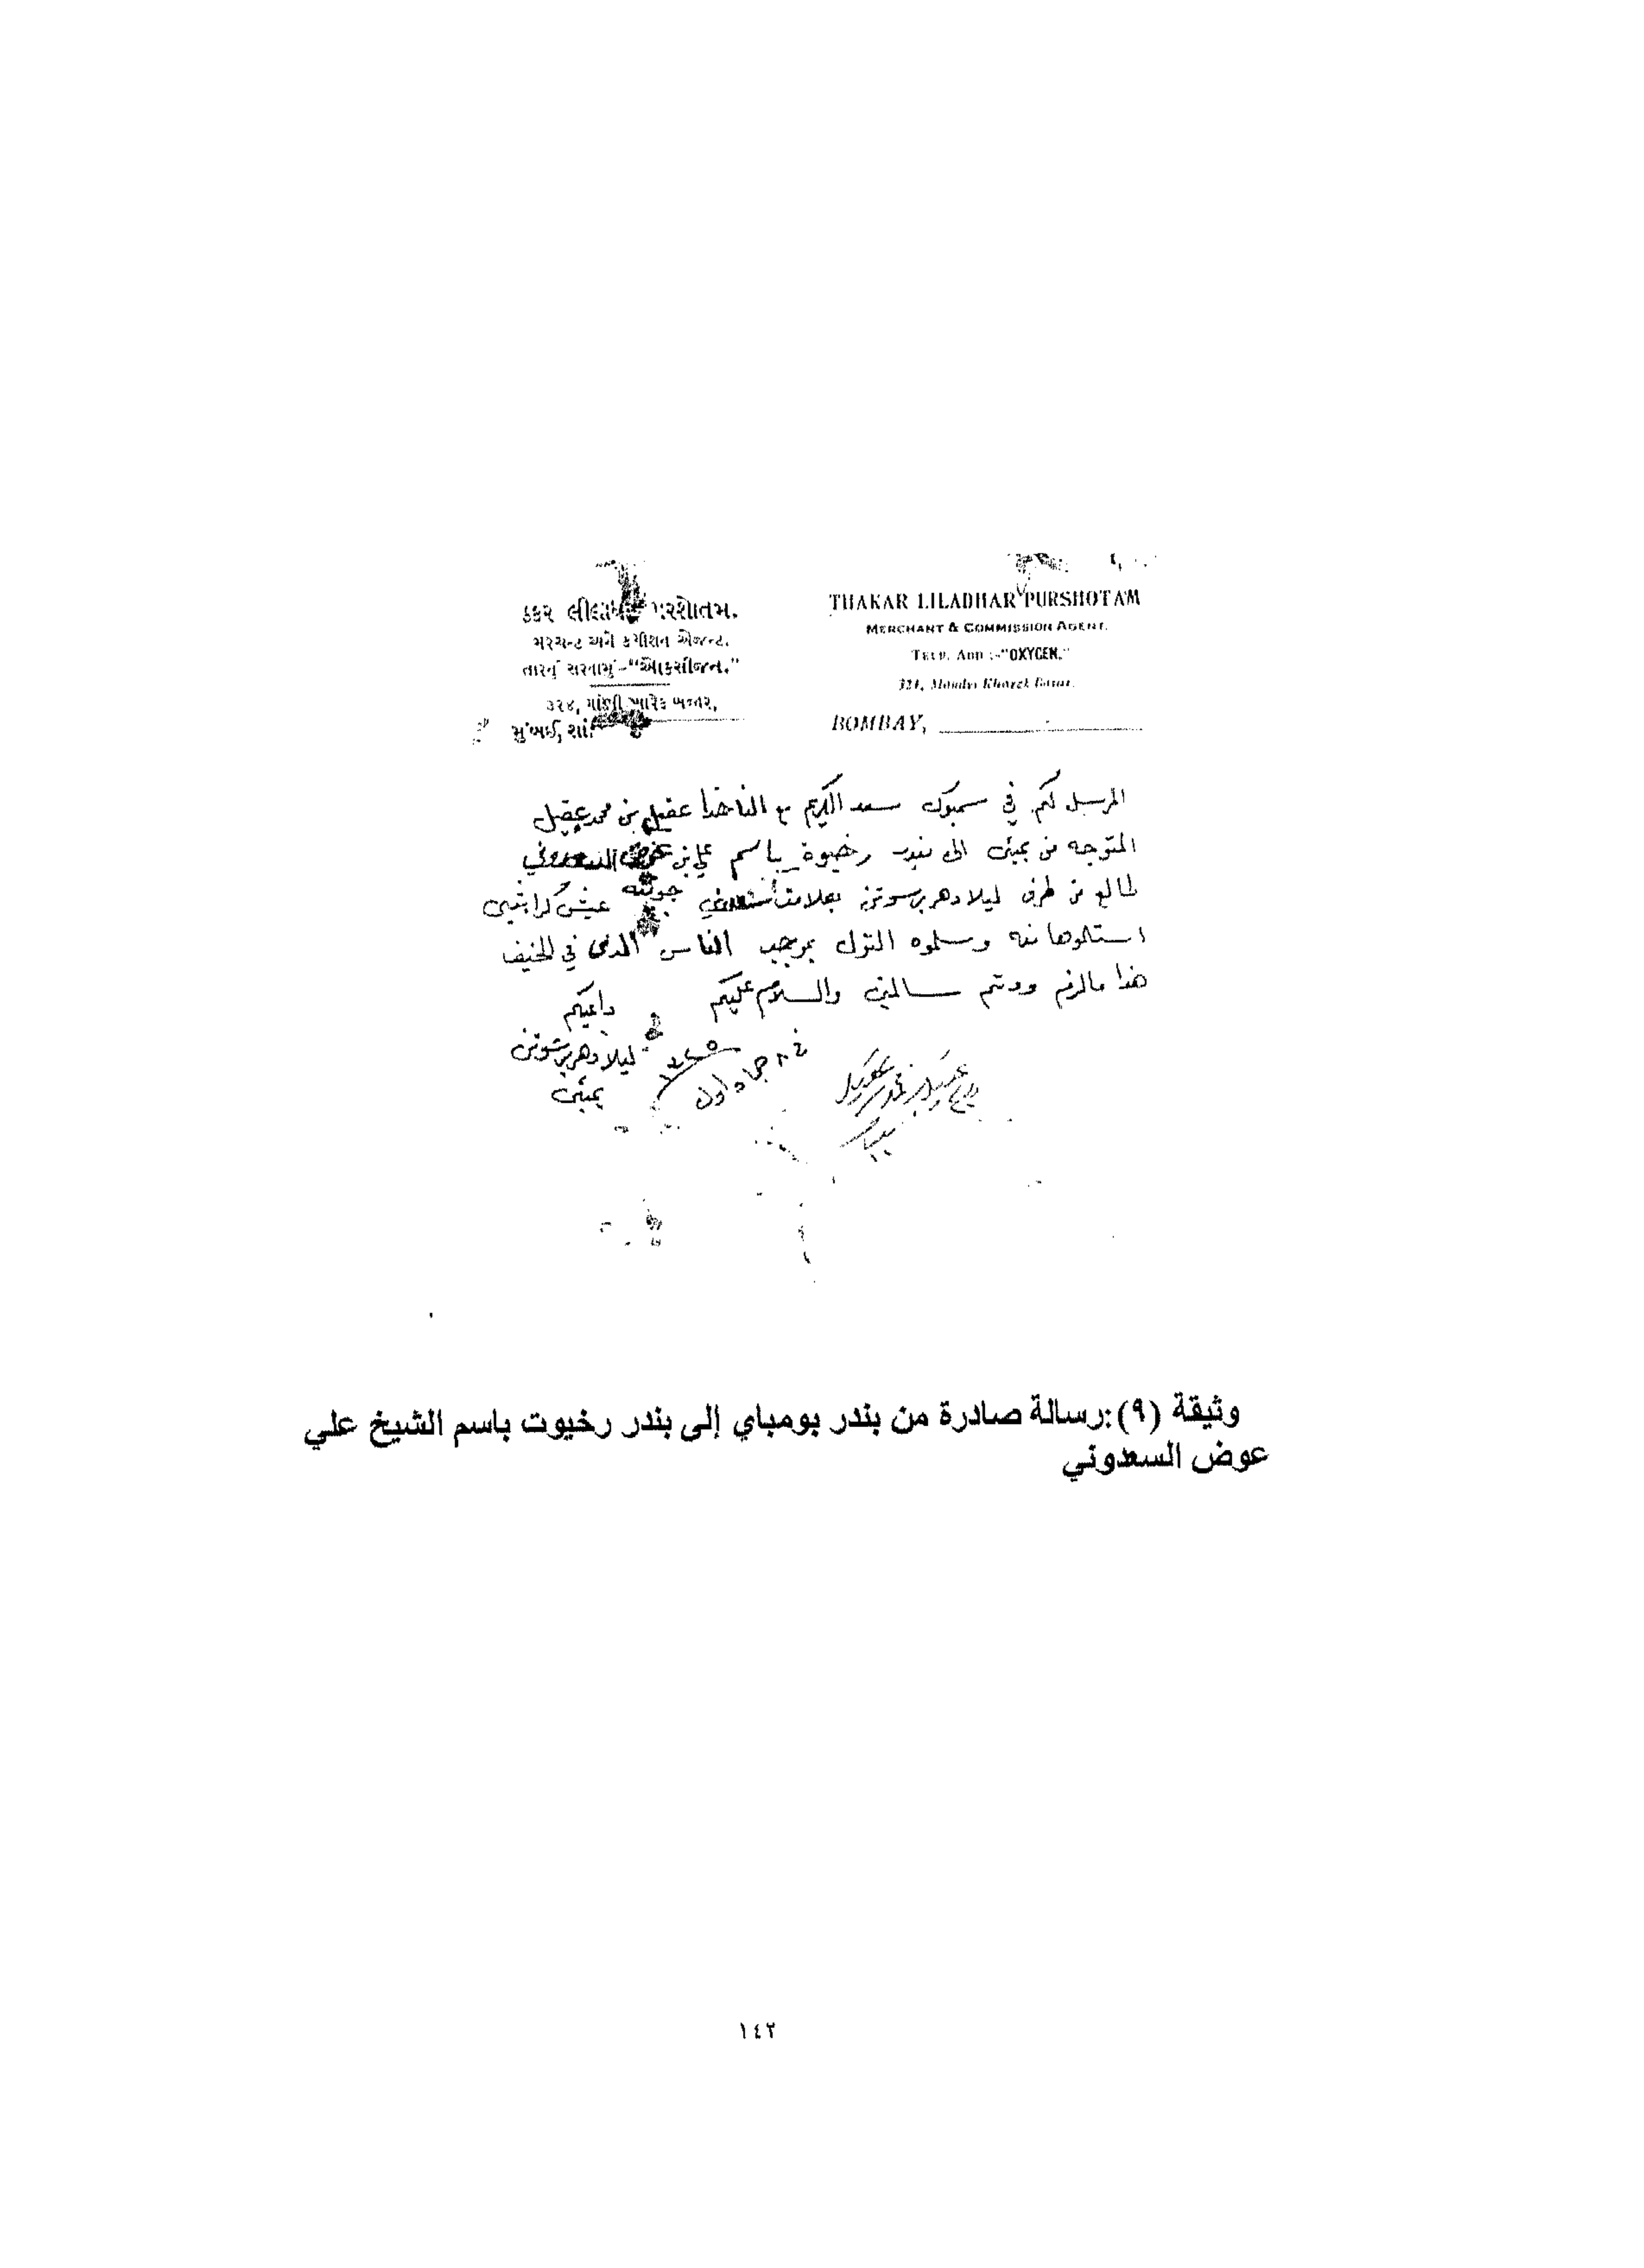 ઠક્કર લીલાધર પરશોતમ.
મરચન્ટ અને કમીશન એજન્ટ.
તારનું સરનામું-"ઓકસીજન."
૩૨૪, માંડવી ખારેક બજાર,
મુંબઈ,
THAKAR LILADHAR PURSHOTAM
MERCHANT & COMMISSION AGENT.
TELE. ADD :-"OXYGEN."
321, Mandvi Kharek Bazar.
BOMBAY,
المرسل لكم في سمبوك سعد الكريم مع الناخذا عقيل بن محمد عقيل
المتوجه من بمبئ الى بندر رخيوة باسم علي بن عوض السعدوني
طالع من طرف ليلادهر برسوتن بعلامت جونيه عيش كراتشي
استلموها منه وسلموه النول بموجب الناس الذى في الخيف
هذا مالزم ودتم سالمين والسلام عليكم
داعيكم
ليلادهر برشوتن
بمبئ
جماد اول
وثيقة (٩):رسالة صادرة من بندر بومباي إلى بندر رخيوت باسم الشيخ علي
عوض السعدوني
١٤٢